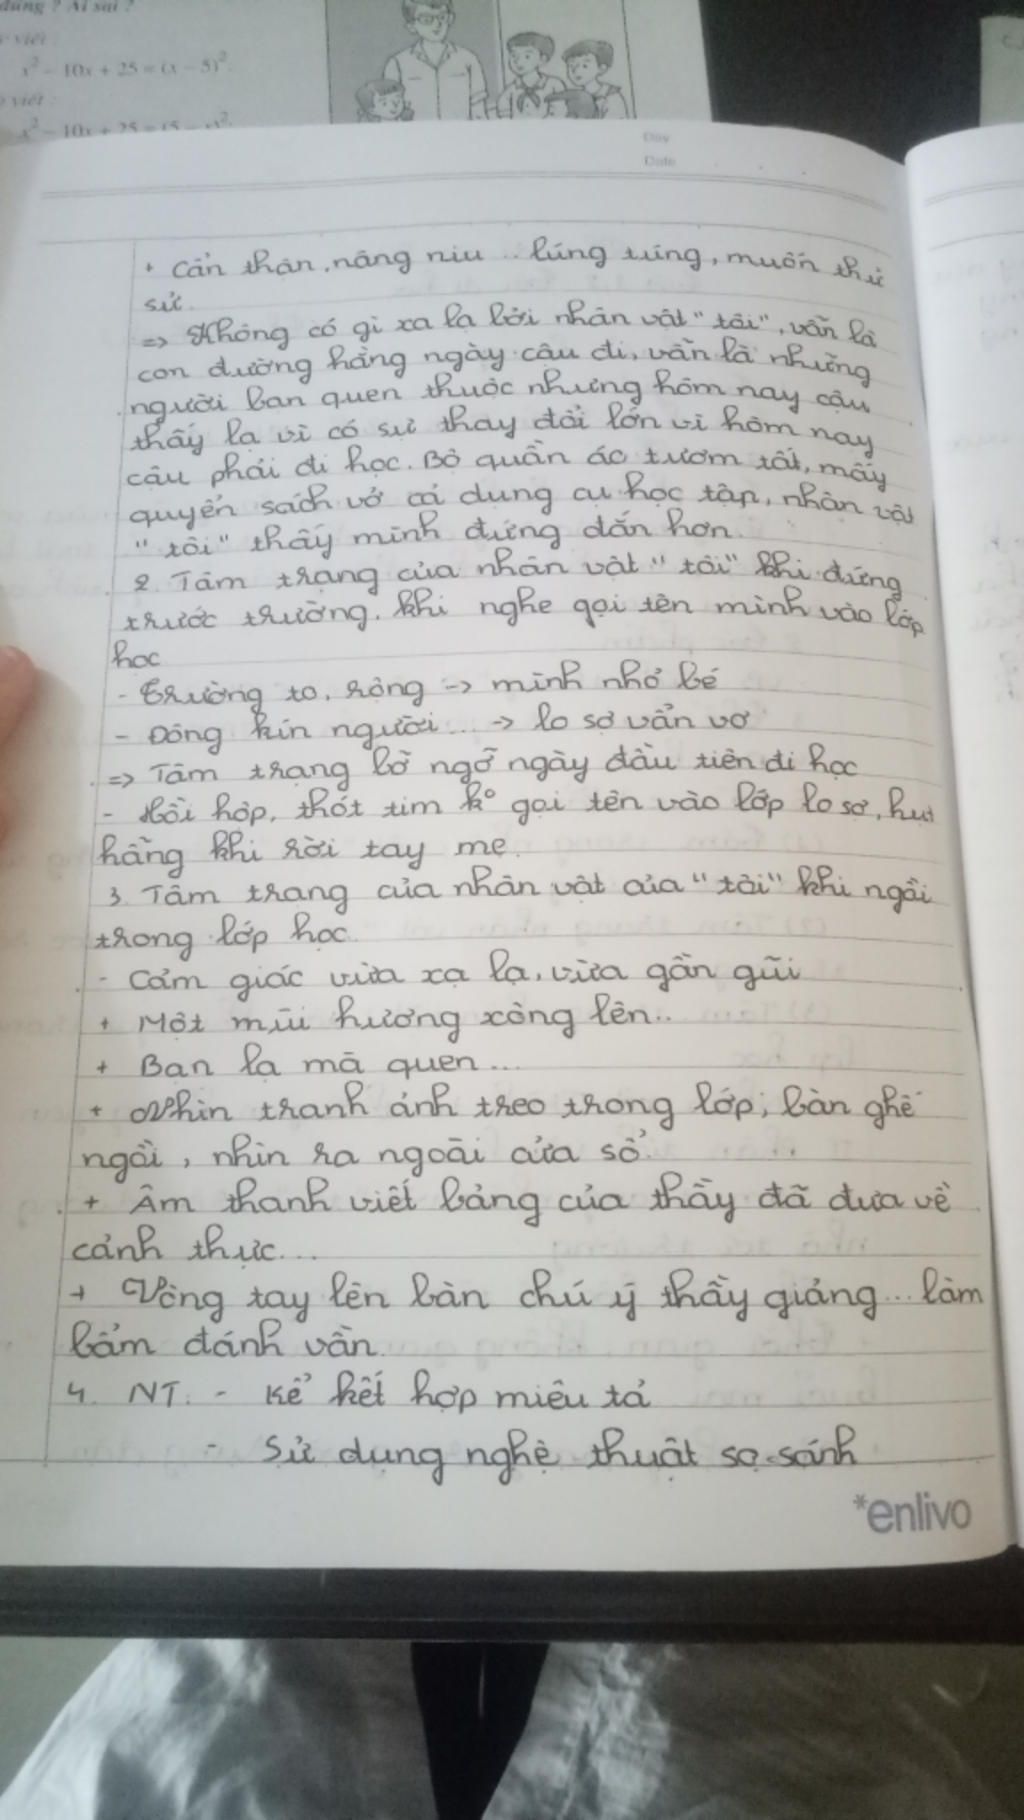 dung ? Ai sai ?
viết :
x² - 10x + 25 = (x - 5)².
viết :
x² - 10x + 25 = (5 - x)².
Day
Date
+ cẩn thận, nâng niu .. lúng túng, muốn thử
sức.
=> Không có gì xa lạ bởi nhân vật "tôi", vẫn là
con đường hằng ngày cậu đi, vẫn là những
người bạn quen thuộc nhưng hôm nay cậu
thấy lạ vì có sự thay đổi lớn vì hôm nay
cậu phải đi học. Bộ quần áo tươm tất, mấy
quyển sách vở cả dụng cụ học tập, nhân vật
"tôi" thấy mình đứng đắn hơn.
2. Tâm trạng của nhân vật "tôi" khi đứng
trước trường, khi nghe gọi tên mình vào lớp
học
- Trường to, rộng -> mình nhỏ bé
- Đông kín người... -> lo sợ vẩn vơ
=> Tâm trạng bở ngỡ ngày đầu tiên đi học
- Hồi hộp, thót tim k° gọi tên vào lớp lo sợ, hụt
hẫng khi rời tay mẹ.
3. Tâm trạng của nhân vật của "tôi" khi ngồi
trong lớp học
- Cảm giác vừa xa lạ, vừa gần gũi
+ Một mùi hương xông lên..
+ Bạn lạ mà quen...
+ Nhìn tranh ảnh treo trong lớp, bàn ghế
ngồi, nhìn ra ngoài cửa sổ.
+ Âm thanh viết bảng của thầy đã đưa về
cảnh thực...
+ Vòng tay lên bàn chú ý thầy giảng... lầm
bẩm đánh vần.
4. NT: - Kể kết hợp miêu tả
- Sử dụng nghệ thuật so sánh
*enlivo